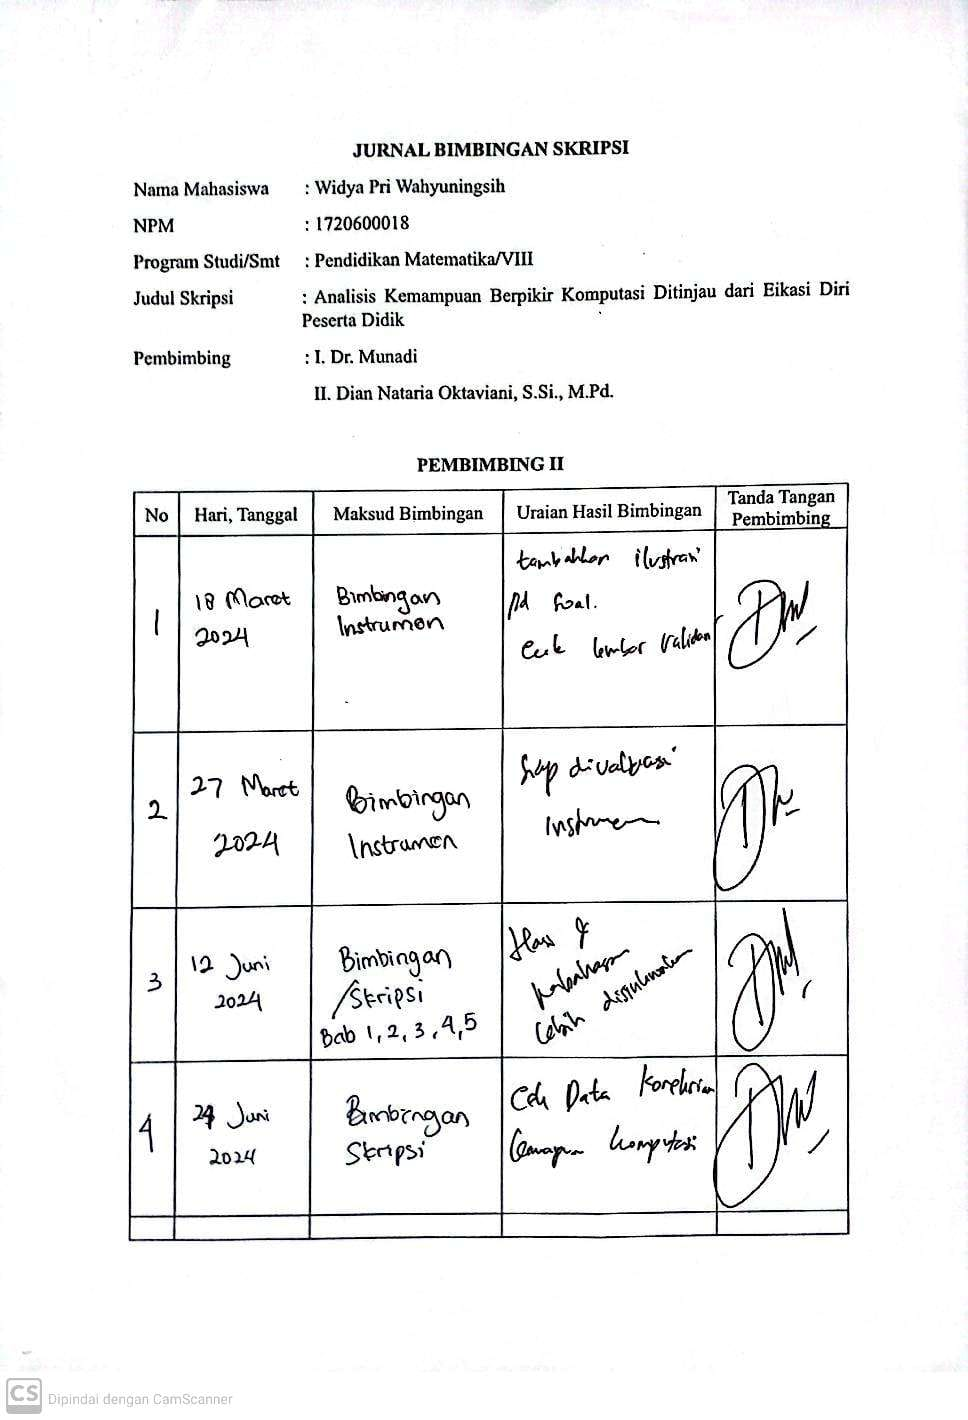 JURNAL BIMBINGAN SKRIPSI
Nama Mahasiswa : Widya Pri Wahyuningsih
NPM : 1720600018
Program Studi/Smt : Pendidikan Matematika/VIII
Judul Skripsi : Analisis Kemampuan Berpikir Komputasi Ditinjau dari Eikasi Diri
Peserta Didik
Pembimbing : I. Dr. Munadi
II. Dian Nataria Oktaviani, S.Si., M.Pd.
PEMBIMBING II
No Hari, Tanggal Maksud Bimbingan Uraian Hasil Bimbingan Tanda Tangan
Pembimbing
1 18 Maret
2024
Bimbingan
Instrumen
tambahkan ilustrasi
pd soal.
Cek lembar validasi
2 27 Maret
2024
Bimbingan
Instrumen
siap divalidasi
Instrumen
3 12 Juni
2024
Bimbingan
Skripsi
Bab 1, 2, 3, 4, 5
lebih
4 24 Juni
2024
Bimbingan
Skripsi
Data
komputasi
CS Dipindai dengan CamScanner